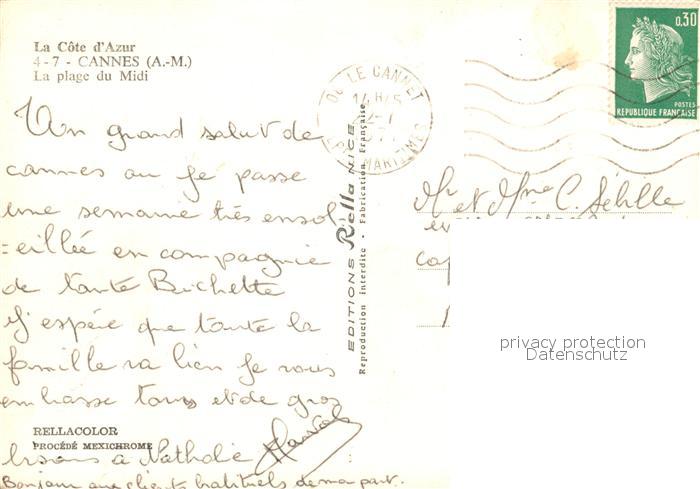 La Côte d'Azur
4-7 - CANNES (A.-M.)
La plage du Midi
Un grand salut de
cannes ou je passe
une semaine très ensol
=eillée en compagnie
de tante Bichette
J'espère que toute la
famille va bien je vous
embrasse tous et de gros
bisous à Nathalie
Bonjour aux clients habituels de ma part.
RELLACOLOR
PROCÉDÉ MEXICHROME
EDITIONS Rella NICE
Reproduction interdite - Fabrication Française
LE CANNET
14H15
MARITIMES
0,30
POSTES
REPUBLIQUE FRANÇAISE
Mr et Mme C. Sébille
privacy protection
Datenschutz